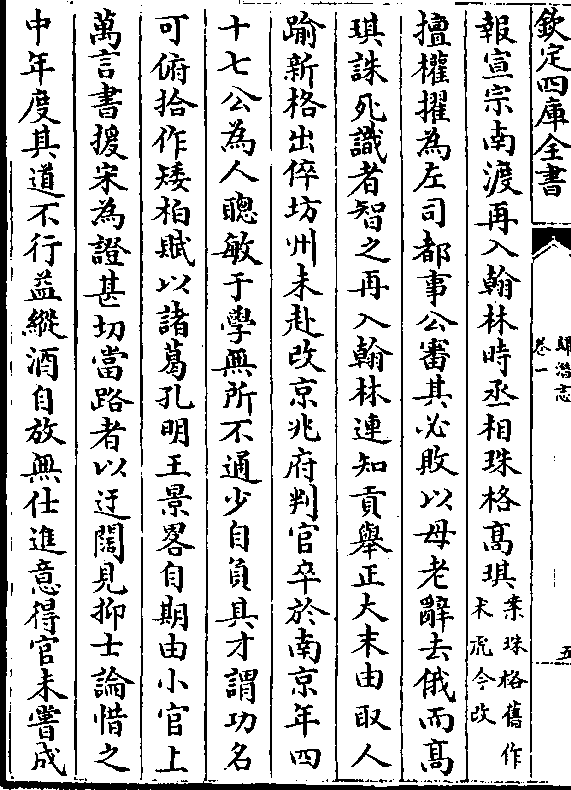 欽定四庫全書
歸潛志
卷一
五
報宣宗南渡再入翰林時丞相珠格髙琪案珠格舊作
术虎今改
擅權擢為左司都事公審其必敗以母老辭去俄而髙
琪誅死識者智之再入翰林連知貢舉正大末由取人
踰新格出倅坊州未赴改京兆府判官卒於南京年四
十七公為人聰敏于學無所不通少自負其才謂功名
可俯拾作矮柏賦以諸葛孔明王景畧自期由小官上
萬言書援宋為證甚切當路者以迂闊見抑士論惜之
中年度其道不行益縱酒自放無仕進意得官未嘗成